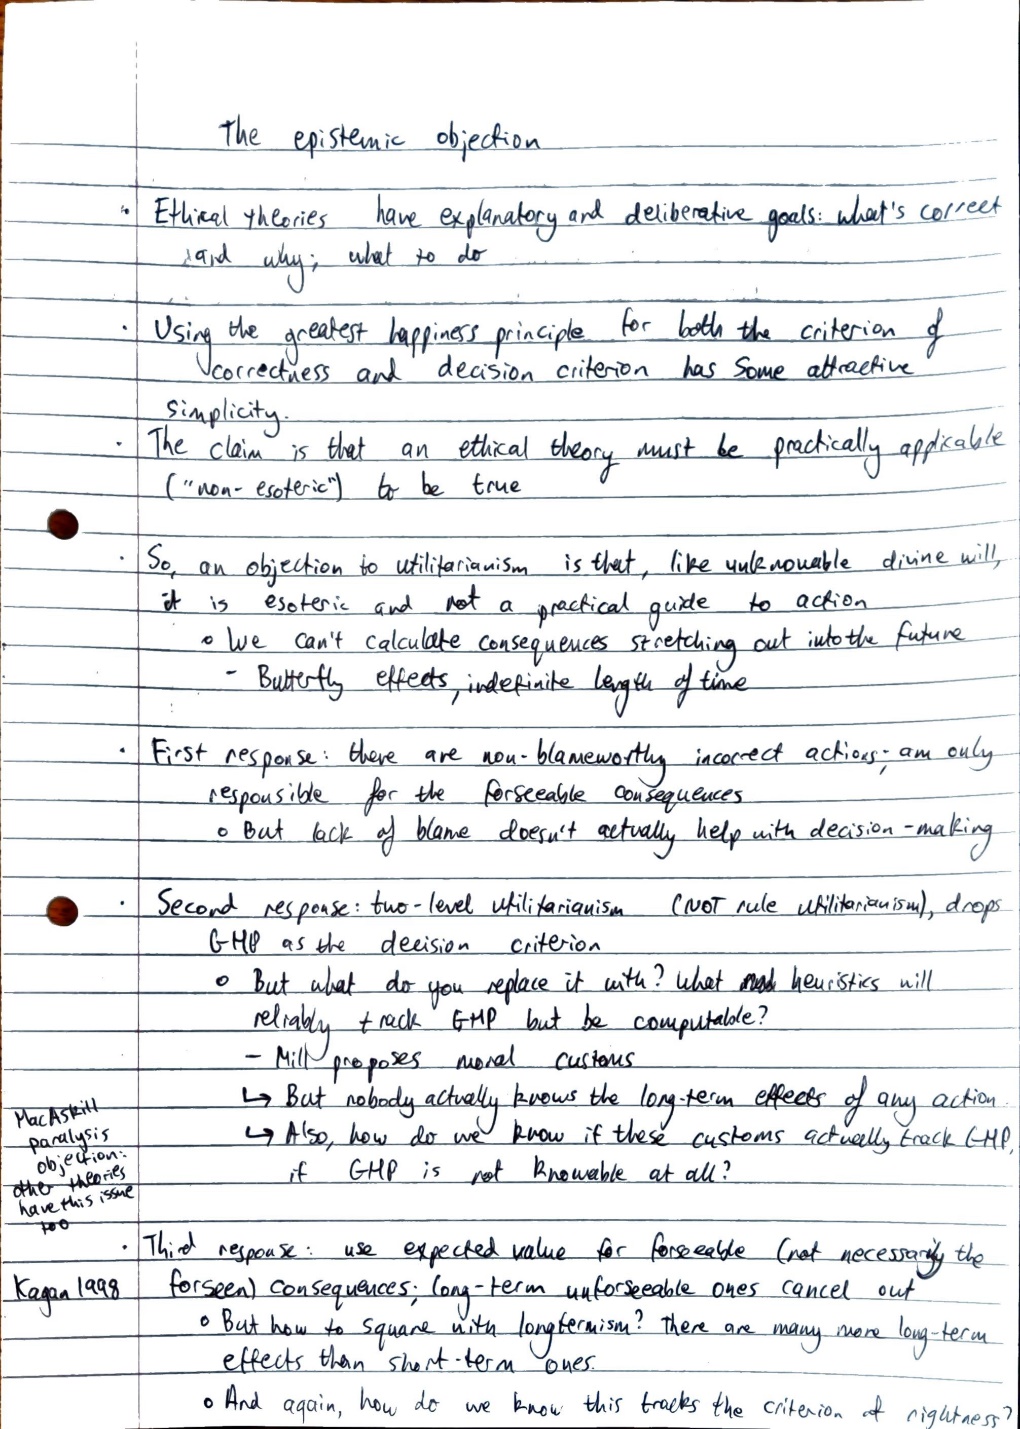 The epistemic objection
· Ethical theories have explanatory and deliberative goals: what's correct
and why; what to do
· Using the greatest happiness principle for both the criterion of
correctness and decision criterion has some attractive
simplicity.
· The claim is that an ethical theory must be practically applicable
("non-esoteric") to be true
· So, an objection to utilitarianism is that, like unknowable divine will,
it is esoteric and not a practical guide to action
o We can't calculate consequences stretching out into the future
- Butterfly effects, indefinite length of time
· First response: there are non-blameworthy incorrect actions; am only
responsible for the forseeable consequences
o But lack of blame doesn't actually help with decision-making
· Second response: two-level utilitarianism (NOT rule utilitarianism), drops
GHP as the decision criterion
o But what do you replace it with? What heuristics will
reliably track GHP but be computable?
- Mill proposes moral customs
↳ But nobody actually knows the long-term effects of any action.
↳ Also, how do we know if these customs actually track GHP,
if GHP is not knowable at all?
MacAskill
paralysis
objection:
other theories
have this issue
too
· Third response: use expected value for forseeable (not necessarily the
Kagan 1998
forseen) consequences; long-term unforseeable ones cancel out
o But how to square with longtermism? There are many more long-term
effects than short-term ones.
o And again, how do we know this tracks the criterion of rightness?